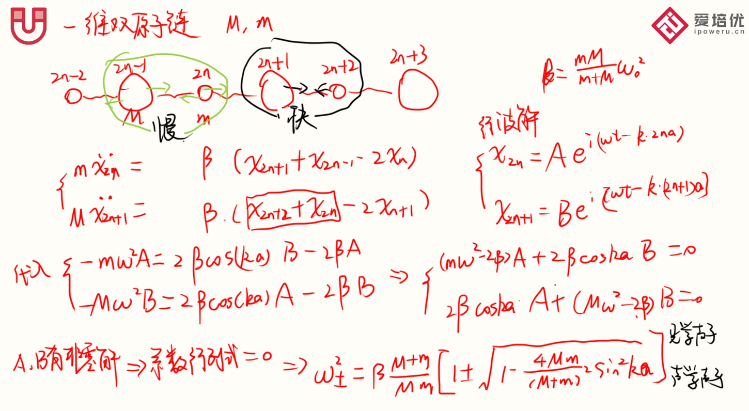 一维双原子链 M, m
爱培优
ipoweru.cn
2n-2 2n-1 2n 2n+1 2n+2 2n+3
M m
慢 快
β = mM/(m+M) ω₀²
行波解
mẍ₂ₙ = β (x₂ₙ₊₁ + x₂ₙ₋₁ - 2xₙ)
Mẍ₂ₙ₊₁ = β·(x₂ₙ₊₂ + x₂ₙ - 2x₂ₙ₊₁)
x₂ₙ = A e^{i(ωt - k·2na)}
x₂ₙ₊₁ = B e^{i[ωt - k·(2n+1)a]}
代入
-mω²A = 2βcos(ka) B - 2βA
-Mω²B = 2βcos(ka) A - 2βB
⇒ (mω² - 2β)A + 2βcoska B = 0
2βcoska A + (Mω² - 2β)B = 0
A, B有非零解 ⇒ 系数行列式 = 0 ⇒ ω±² = β (M+m)/(Mm) [1 ± √(1 - 4Mm/(M+m)² sin²ka)]
光学声子
声学声子